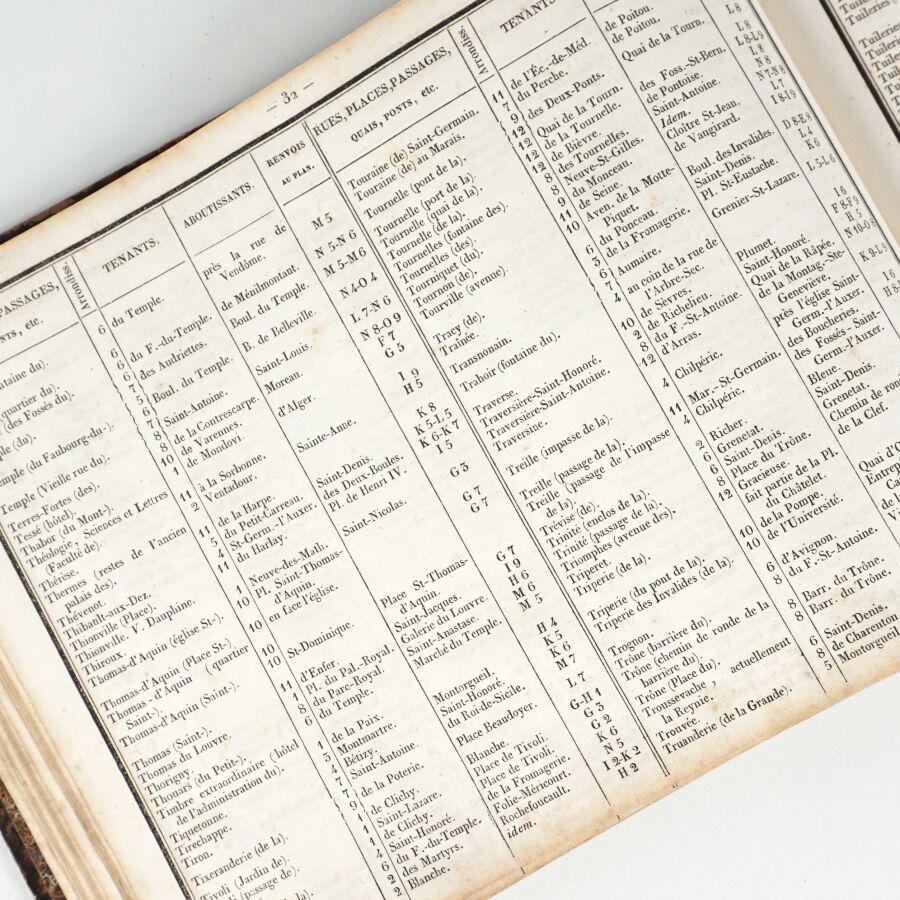 — 32 —
PASSAGES,
NTS, etc.
ntaine du).
quartier du).
(des Fossés du).
ple (du).
mple (du Faubourg-du-).
emple (Vieille rue du).
Terres-Fortes (des).
Tessé (hôtel).
Thabor (du Mont-).
Théologie, Sciences et Lettres
(Faculté de).
Thérèse.
Thermes (restes de l'ancien
palais des).
Thévenot.
Thibault-aux-Dez.
Thionville (Place).
Thionville. V. Dauphine.
Thiroux.
Thomas-d'Aquin (église St-).
Thomas-d'Aquin (Place St-)
Thomas-d'Aquin (quartier
Saint-).
Thomas-d'Aquin (Saint-).
Thomas (Saint-).
Thomas du Louvre.
Thorigny.
Thouars (du Petit-).
Timbre extraordinaire (hôtel
de l'administration du).
Tiquetonne.
Tirechappe.
Tiron.
Tixeranderie (de la).
Tivoli (Jardin de).
Arrondiss.
TENANTS.
du Temple.
du F.-du-Temple.
des Audriettes.
Boul. du Temple.
Saint-Antoine.
de la Contrescarpe.
de Varennes.
de Mondovi.
à la Sorbonne.
Ventadour.
de la Harpe.
du Petit-Carreau.
St-Germ.-l'Auxer.
du Harlay.
Neuve-des-Math.
Pl. Saint-Thomas-
d'Aquin.
en face l'église.
St-Dominique.
d'Enfer.
Pl. du Pal.-Royal.
du Parc-Royal.
du Temple.
de la Paix.
Montmartre.
Bétizy.
Saint-Antoine.
de la Poterie.
de Clichy.
Saint-Lazare.
de Clichy.
Saint-Honoré.
du F.-du-Temple.
des Martyrs.
Blanche.
ABOUTISSANTS.
près la rue de
Vendôme.
de Ménilmontant.
Boul. du Temple.
B. de Belleville.
Saint-Louis.
Moreau.
d'Alger.
Sainte-Anne.
Saint-Denis.
des Deux-Boules.
Pl. de Henri IV.
Saint-Nicolas.
Place St-Thomas-
d'Aquin.
Saint-Jacques.
Galerie du Louvre.
Saint-Anastase.
Marché du Temple.
Montorgueil.
Saint-Honoré.
du Roi-de-Sicile.
Place Beaudoyer.
Blanche.
Place de Tivoli.
Place de Tivoli.
de la Fromagerie.
Folie-Méricourt.
Rochefoucault.
idem.
RENVOIS
AU PLAN.
M 5
N 5-N 6
M 5-M 6
N 4-O 4
L 7-N 6
N 8-O 9
F 7
G 3
I 9
H 5
K 8
K 5-L 5
K 6-K 7
I 5
G 3
G 7
G 7
G 7
I 9
H 6
M 6
M 5
H 4
K 5
K 6
M 7
L 7
G-H 1
G 3
G 2
K 6
N 5
I 2-K 2
H 2
RUES, PLACES, PASSAGES,
QUAIS, PONTS, etc.
Touraine (de) Saint-Germain.
Touraine (de) au Marais.
Tournelle (pont de la).
Tournelle (port de la).
Tournelle (quai de la).
Tournelle (de la).
Tournelles (fontaine des).
Tournelles (des).
Tourniquet (du).
Tournon (de).
Tourville (avenue).
Tracy (de).
Traînée.
Transnonain.
Trahoir (fontaine du).
Traverse.
Traversière-Saint-Honoré.
Traversière-Saint-Antoine.
Traversine.
Treille (impasse de la).
Treille (passage de la).
Treille (passage de l'impasse
de la).
Trévise (de).
Trinité (enclos de la).
Trinité (passage de la).
Triomphes (avenue des).
Triperet.
Triperie (de la).
Triperie (du pont de la).
Triperie des Invalides (de la).
Trognon.
Trône (barrière du).
Trône (chemin de ronde de la
barrière du).
Trône (Place du).
Troussevache, actuellement
la Reynie.
Trouvée.
Truanderie (de la Grande).
Arrondiss.
TENANTS.
de l'Éc.-de-Méd.
du Perche.
des Deux-Ponts.
Quai de la Tourn.
de la Tournelle.
de Bièvre.
des Tournelles.
Neuve-St-Gilles.
du Monceau.
de Seine.
Aven. de la Motte-
Piquet.
du Ponceau.
de la Fromagerie.
Aumaire.
au coin de la rue de
l'Arbre-Sec.
de Sèvres.
de Richelieu.
du F.-St-Antoine.
d'Arras.
Chilpéric.
Mar.-St-Germain.
Chilpéric.
Richer.
Grenetat.
Saint-Denis.
Place du Trône.
Gracieuse.
fait partie de la Pl.
du Châtelet.
de la Pompe.
de l'Université.
d'Avignon.
du F.-St-Antoine.
Barr. du Trône.
Barr. du Trône.
Saint-Denis.
de Charenton
Montorgueil
de Poitou.
de Poitou.
Quai de la Tourn.
des Foss.-St-Bern.
de Pontoise.
Saint-Antoine.
Idem.
Cloître St-Jean.
de Vaugirard.
Boul. des Invalides.
Saint-Denis.
Pl. St-Eustache.
Grenier-St-Lazare.
Plumet.
Saint-Honoré.
Quai de la Râpée.
de la Montag.-Ste-
Geneviève.
près l'église Saint-
Germ.-l'Auxer.
des Boucheries.
des Fossés-Saint-
Germ.-l'Auxer.
Bleue.
Saint-Denis.
Grenetat.
Chemin de ron
de la Clef.
Quai d'O
Entrep
L 8
L 8
L 8-L 9
L 8
N 8
N 7-N 8
L 7
I 8-I 9
D 8-E 8
L 4
K 6
L 5-L 6
I 6
F 8-F 9
H 5
N 10-O 8
K 9-L 9
I 6
Tuileries
Tuilerie